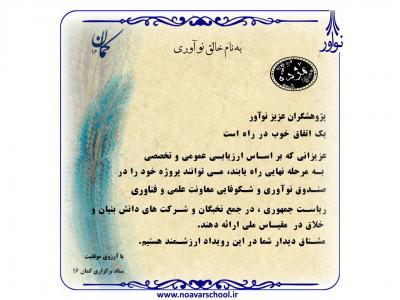 نوآور
کمان ۱۶
به نام خالق نوآوری
مژده
پژوهشگران عزیز نوآور
یک اتفاق خوب در راه است
عزیزانی که بر اساس ارزیابی عمومی و تخصصی
به مرحله نهایی راه یابند، می توانند پروژه خود را در
صندوق نوآوری و شکوفایی معاونت علمی و فناوری
ریاست جمهوری ، در جمع نخبگان و شرکت های دانش بنیان و
خلاق در مقیاس ملی ارائه دهند.
مشتاق دیدار شما در این رویداد ارزشمند هستیم.
با آرزوی موفقیت
ستاد برگزاری کمان ۱۶
www.noavarschool.ir